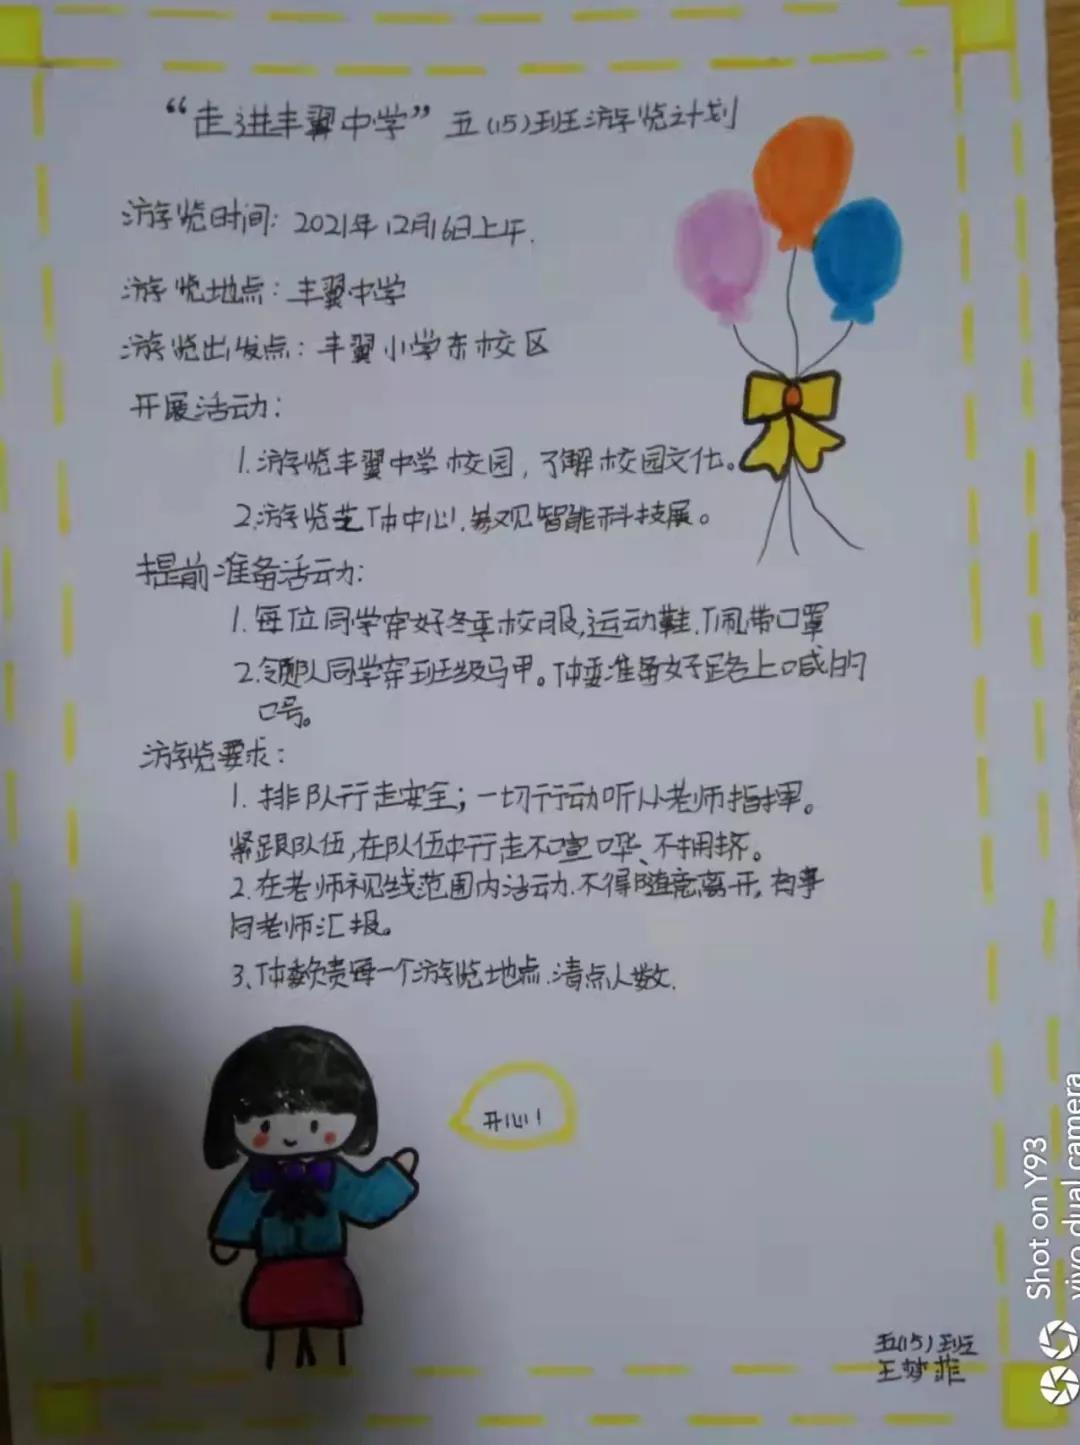 “走进丰翼中学”五(15)班游览计划
游览时间：2021年12月16日上午.
游览地点：丰翼中学
游览出发点：丰翼小学东校区
开展活动：
1.游览丰翼中学校园，了解校园文化。
2.游览艺体中心.参观智能科技展。
提前准备活动：
1.每位同学穿好冬季校服,运动鞋.佩带口罩
2.领队同学穿班级马甲。体委准备好路上喊的
口号。
游览要求：
1.排队行走安全；一切行动听从老师指挥。
紧跟队伍,在队伍中行走不喧哗、不拥挤。
2.在老师视线范围内活动.不得随意离开,有事
向老师汇报。
3、体委负责每一个游览地点.清点人数.
开心！
五(15)班
王梦菲
Shot on Y93
vivo dual camera